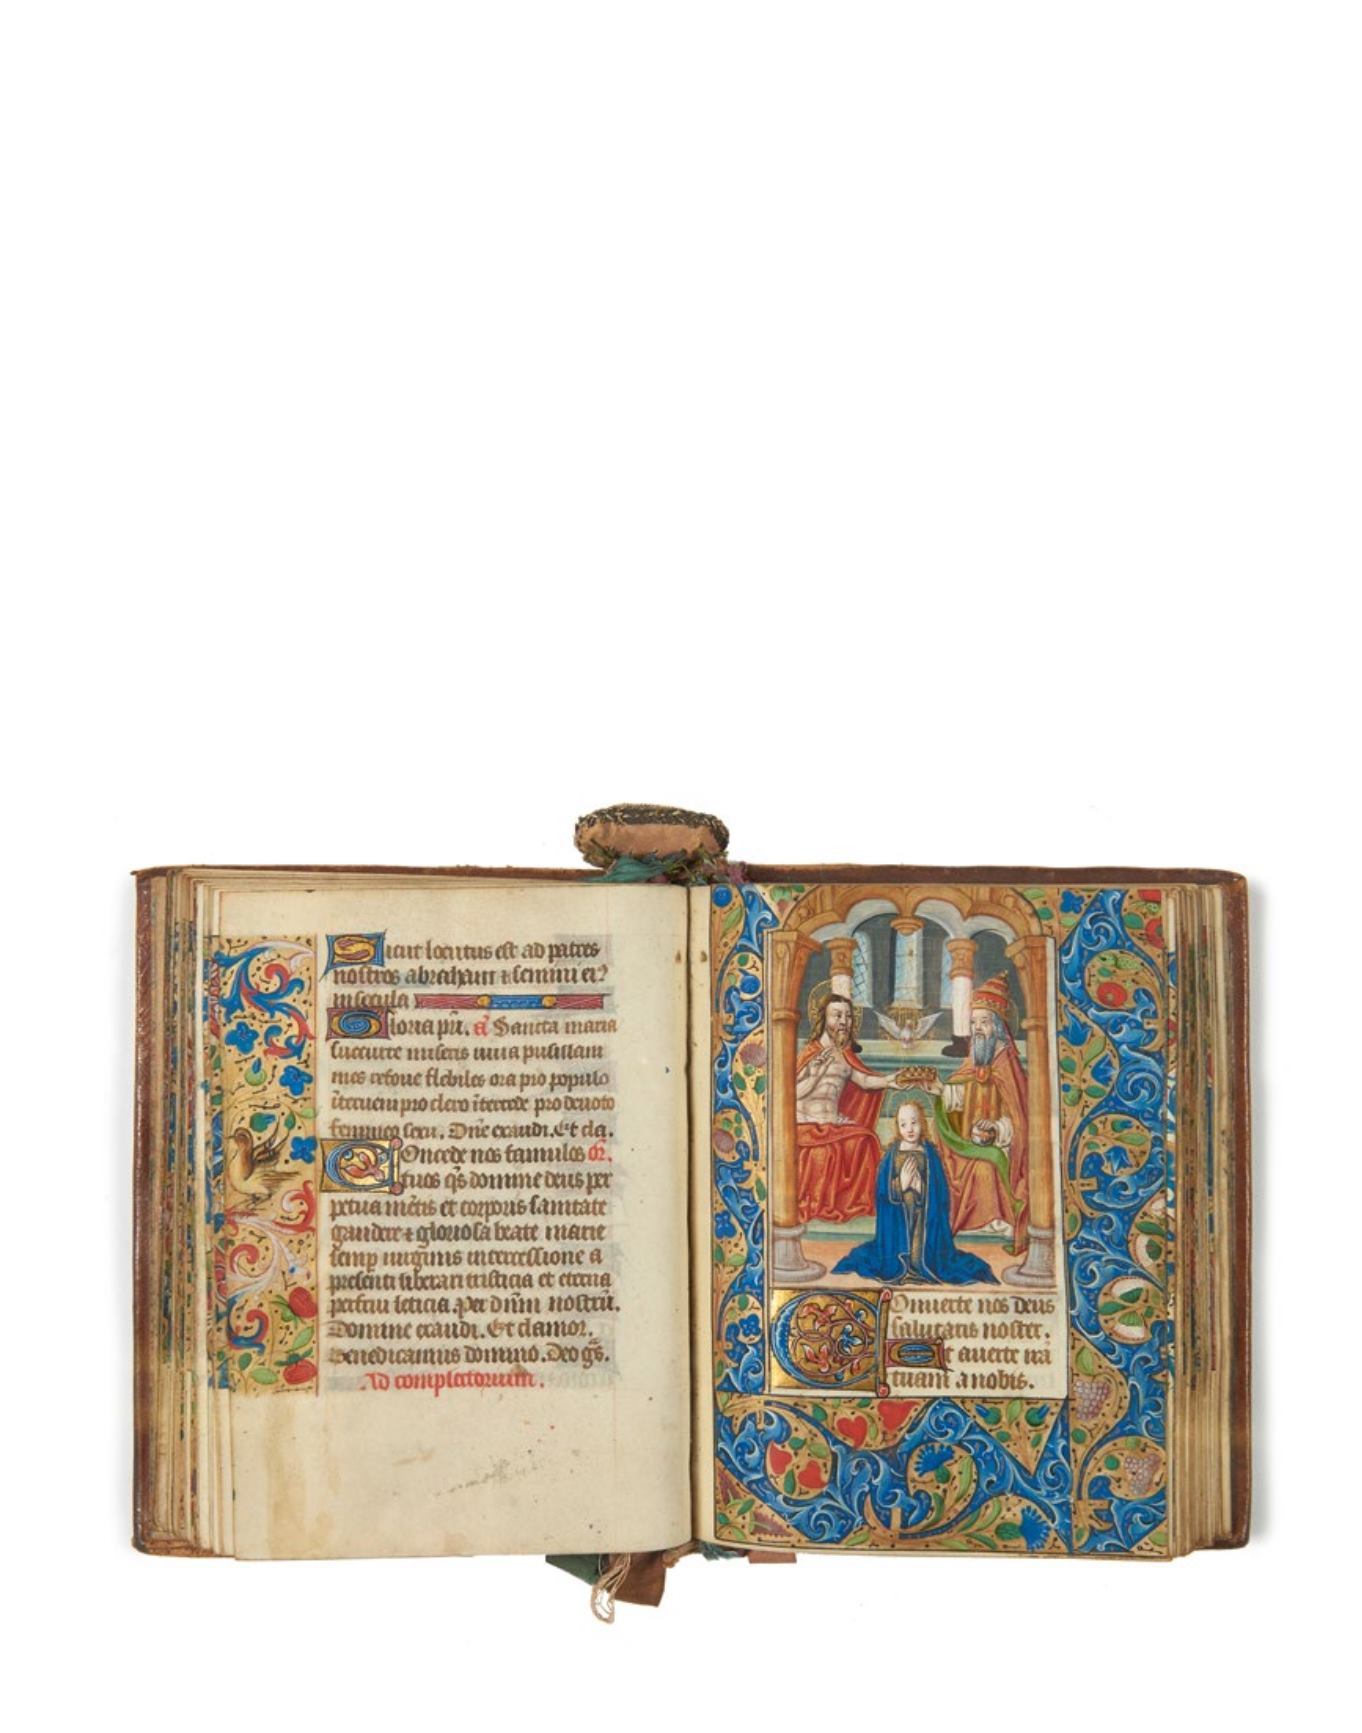 Sicut locutus est ad patres
nostros abraham ⁊ semini ei⁹
in secula
Gloria pr̄i. añ Sancta maria
succurre miseris iuua pusillani
mes refoue flebiles ora pro populo
īterueni pro clero ītercede pro deuoto
femineo sexu. Dn̄e exaudi. Et cla.
Concede nos famulos or̄.
tuos qs̄ domine deus per
petua mētis et corporis sanitate
gaudere ⁊ gloriosa beate marie
semp uirginis intercessione a
presenti liberari tristicia et eterna
perfrui leticia. Per dn̄m nostrū.
Domine exaudi. Et clamor.
Benedicamus domino. Deo gr̄s.
Ad completorium.
Conuerte nos deus
salutaris noster.
Et auerte irā
tuam a nobis.